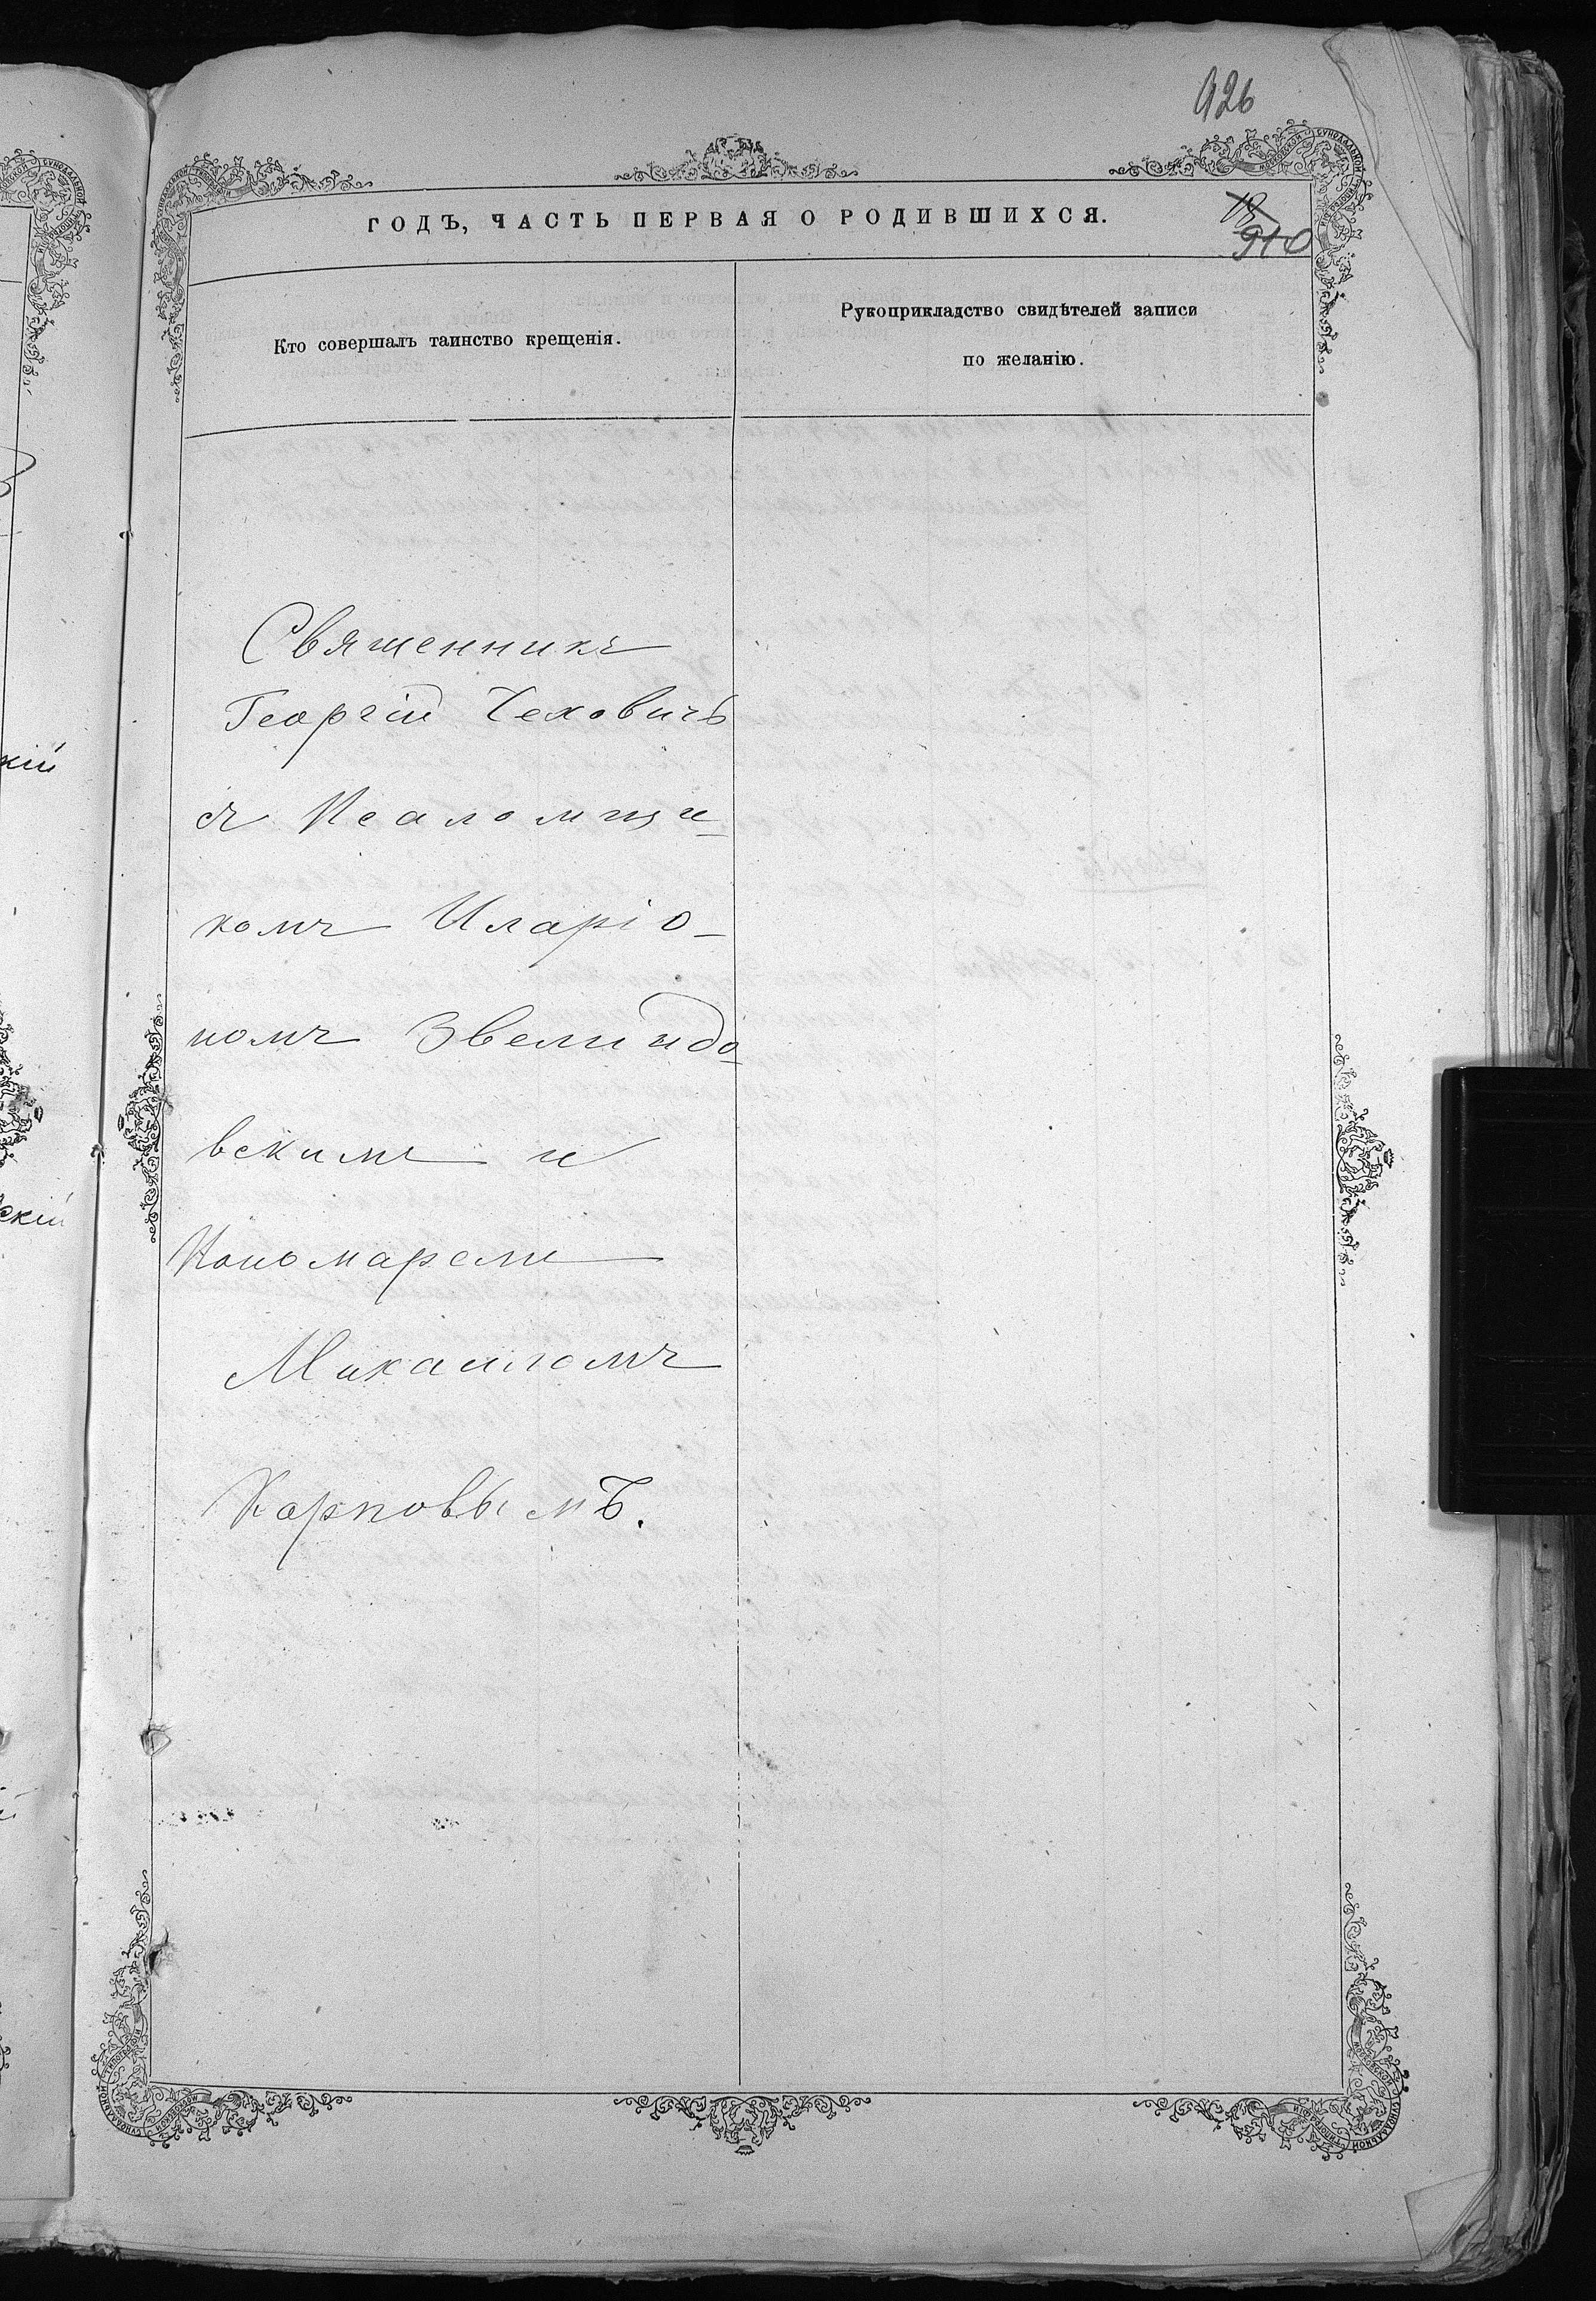 926
ГОДЪ, ЧАСТЬ ПЕРВАЯ О РОДИВШИХСЯ.
910
Кто совершалъ таинство крещенія.
Рукоприкладство свидѣтелей записи
по желанію.
Священникъ
Георгій Чеховичъ
съ Псаломщи-
комъ Иларіо-
номъ
вскимъ и
Пономаремъ
Михаиломъ
Карповымъ.
кій
скій